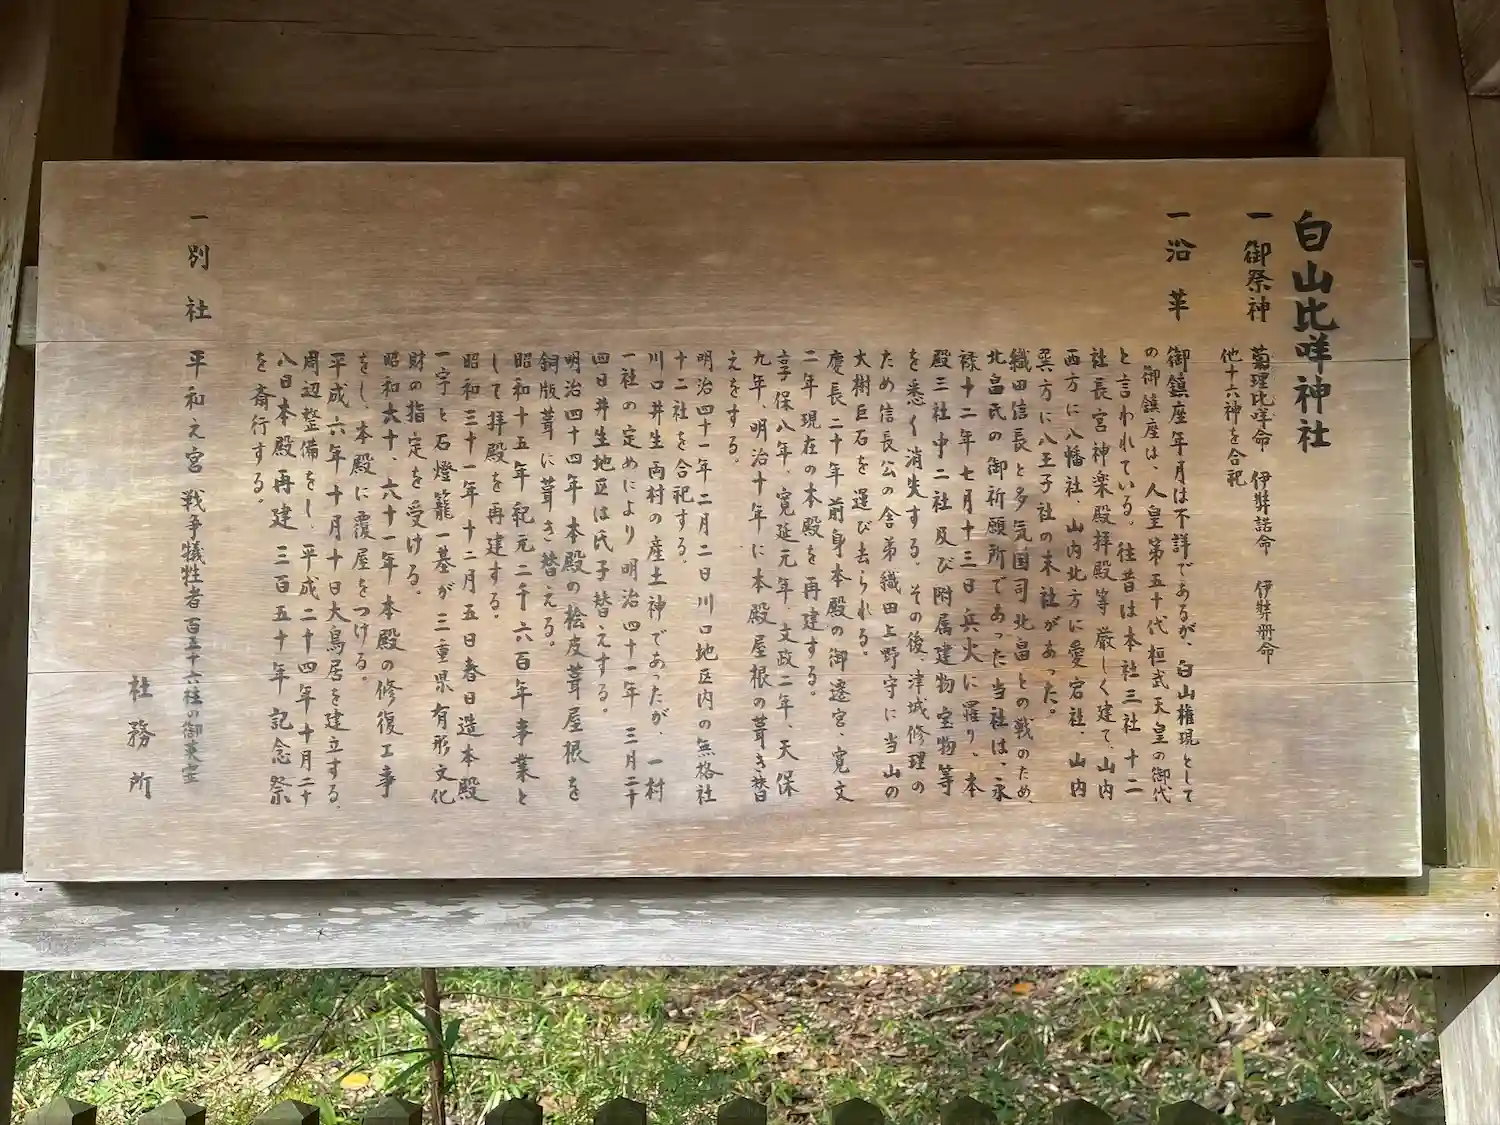 白山比咩神社
一 御祭神
菊理比咩命 伊弉諾命 伊弉册命
他十六神を合祀
一 沿革
御鎮座年月は不詳であるが、白山権現として
の御鎮座は、人皇第五十代桓武天皇の御代
と言われている。往昔は本社三社 十二
社長宮神楽殿拝殿等厳しく建て、山内
西方に八幡社、山内北方に愛宕社、山内
巽方に八王子社の末社があった。
織田信長と多気国司北畠との戦のため、
北畠氏の御祈願所であった当社は、永
禄十二年七月十三日兵火に罹り、本
殿三社中二社及び附属建物宝物等
を悉く消失する。その後、津城修理の
ため信長公の舎弟織田上野守に当山の
大樹巨石を運び去られる。
慶長二十年前身本殿の御遷宮、寛文
二年現在の本殿を再建する。
享保八年、寛延元年、文政二年、天保
九年、明治十年に本殿屋根の葺き替
えをする。
明治四十一年二月二日川口地区内の無格社
十二社を合祀する。
川口井生両村の産土神であったが、一村
一社の定めにより明治四十一年 三月二十
四日井生地区は氏子替えする。
明治四十四年 本殿の桧皮葺屋根を
銅版葺に葺き替える。
昭和十五年紀元二千六百年事業と
して拝殿を再建する。
昭和三十一年十二月五日春日造本殿
一宇と石燈籠一基が三重県有形文化
財の指定を受ける。
昭和六十、六十一年本殿の修復工事
をし、本殿に覆屋をつける。
平成六年十月十日大鳥居を建立する。
周辺整備をし、平成二十四年十月二十
八日本殿再建 三百五十年記念祭
を斎行する。
一 別社 平和之宮 戦争犠牲者百五十六柱の御英霊
社務所